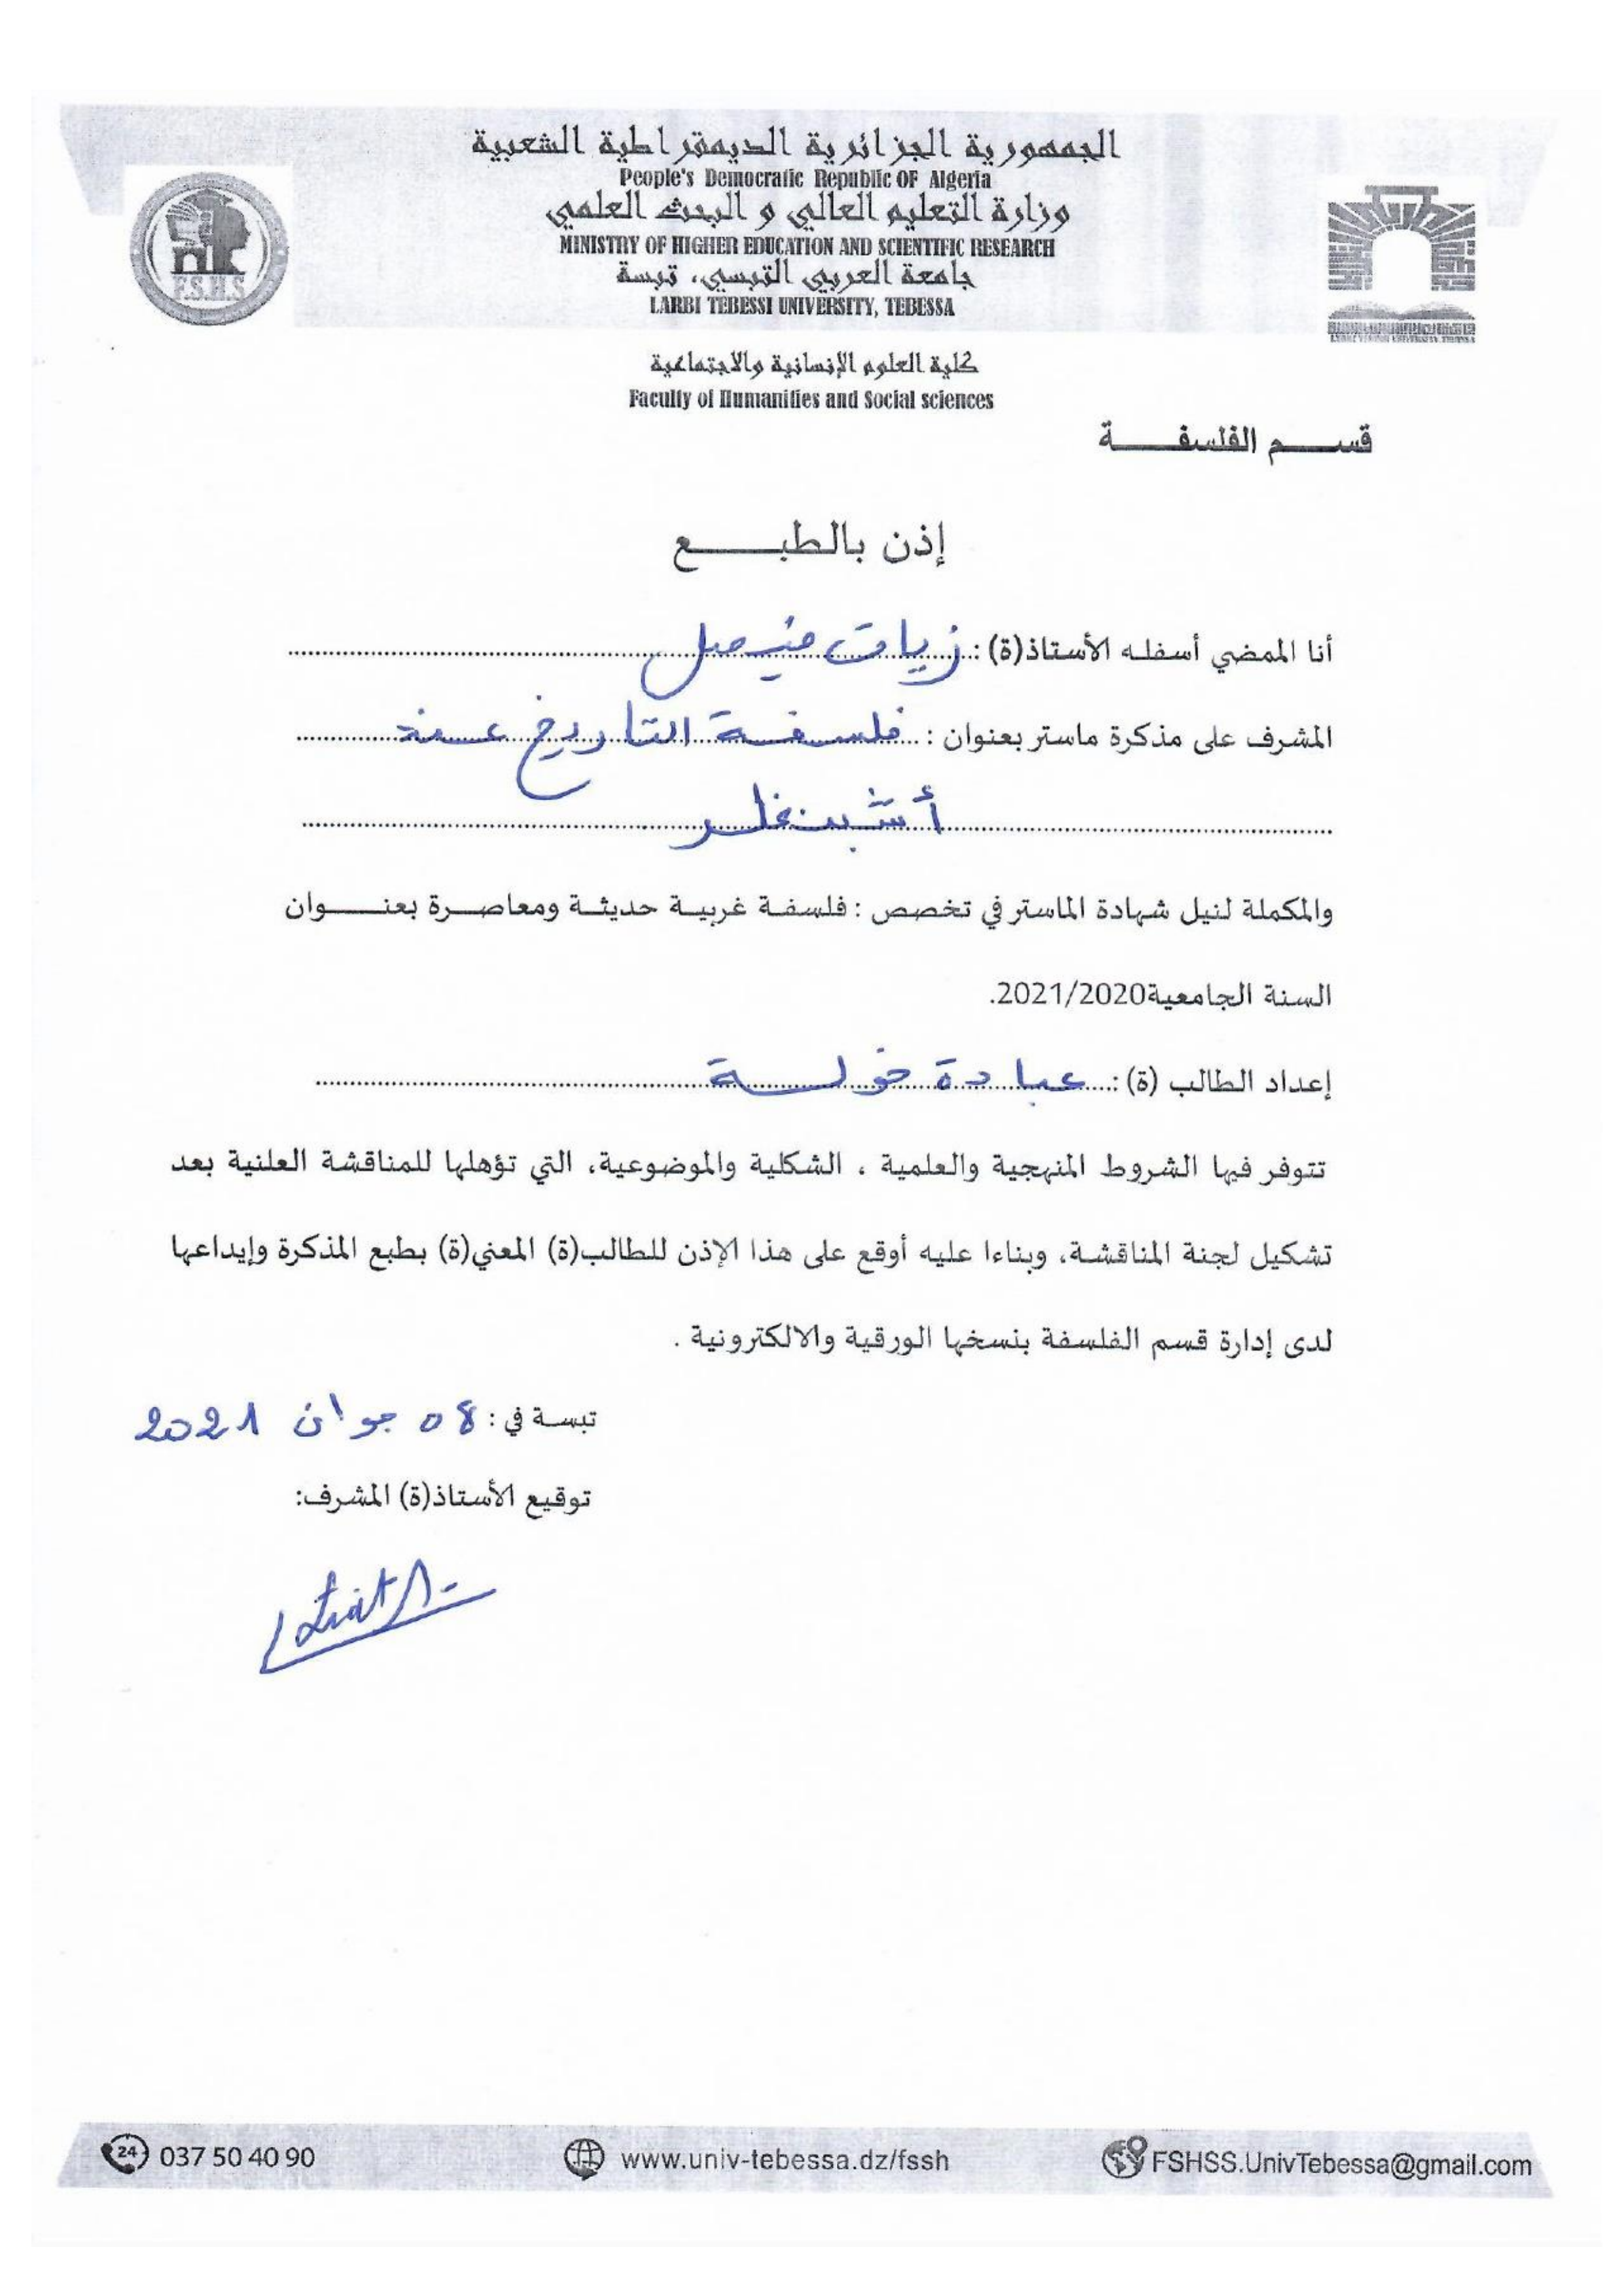 الجمهورية الجزائرية الديمقراطية الشعبية
People's Democratic Republic OF Algeria
وزارة التعليم العالي و البحث العلمي
MINISTRY OF HIGHER EDUCATION AND SCIENTIFIC RESEARCH
جامعة العربي التبسي، تبسة
LARBI TEBESSI UNIVERSITY, TEBESSA
F.S.H.S
كلية العلوم الإنسانية والاجتماعية
Faculty of Humanities and Social sciences
قســـم الفلسفـــــة
إذن بالطبـــــع
أنا الممضي أسفله الأستاذ(ة) : زيات فيصل
المشرف على مذكرة ماستر بعنوان : فلسفة التاريخ عند
أشبنغلر
والمكملة لنيل شهادة الماستر في تخصص : فلسفة غربية حديثة ومعاصرة بعنـــــوان
السنة الجامعية2021/2020.
إعداد الطالب (ة) : عبادة خولة
تتوفر فيها الشروط المنهجية والعلمية ، الشكلية والموضوعية، التي تؤهلها للمناقشة العلنية بعد
تشكيل لجنة المناقشة، وبناءا عليه أوقع على هذا الإذن للطالب(ة) المعني(ة) بطبع المذكرة وإيداعها
لدى إدارة قسم الفلسفة بنسخها الورقية والالكترونية .
تبسة في : 08 جوان 2021
توقيع الأستاذ(ة) المشرف:
24 037 50 40 90
www.univ-tebessa.dz/fssh
FSHSS.UnivTebessa@gmail.com